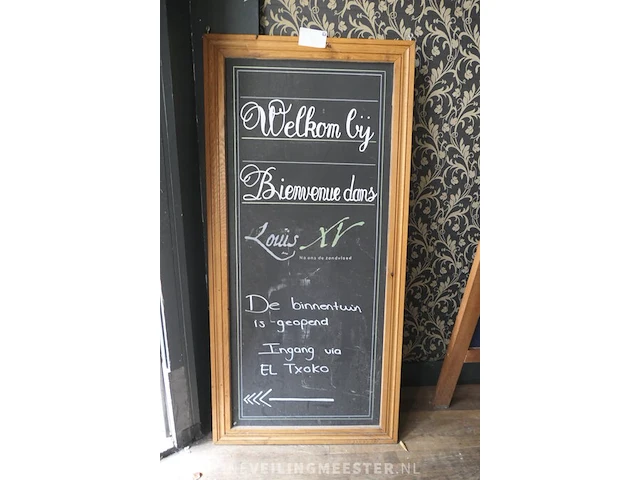 Welkom bij
Bienvenue dans
Louis XV
Na ons de zondvloed
De binnentuin
is geopend
Ingang via
EL Txoko
DEVEILINGMEESTER.NL